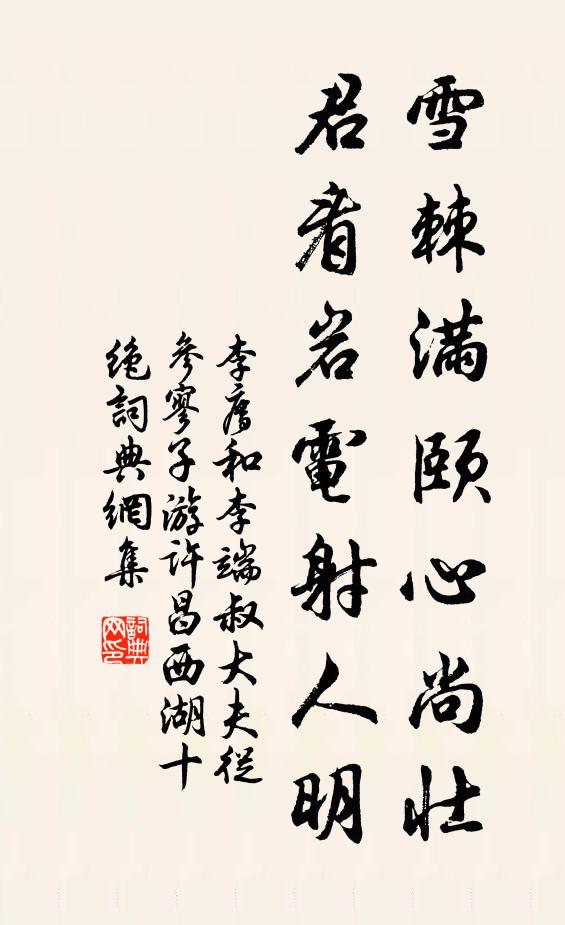 雪棘满颐心尚壮
君看岩電射人明
李廌和李端叔大夫從
參寥子游许昌西湖十
绝詞典網集
詞典
网印